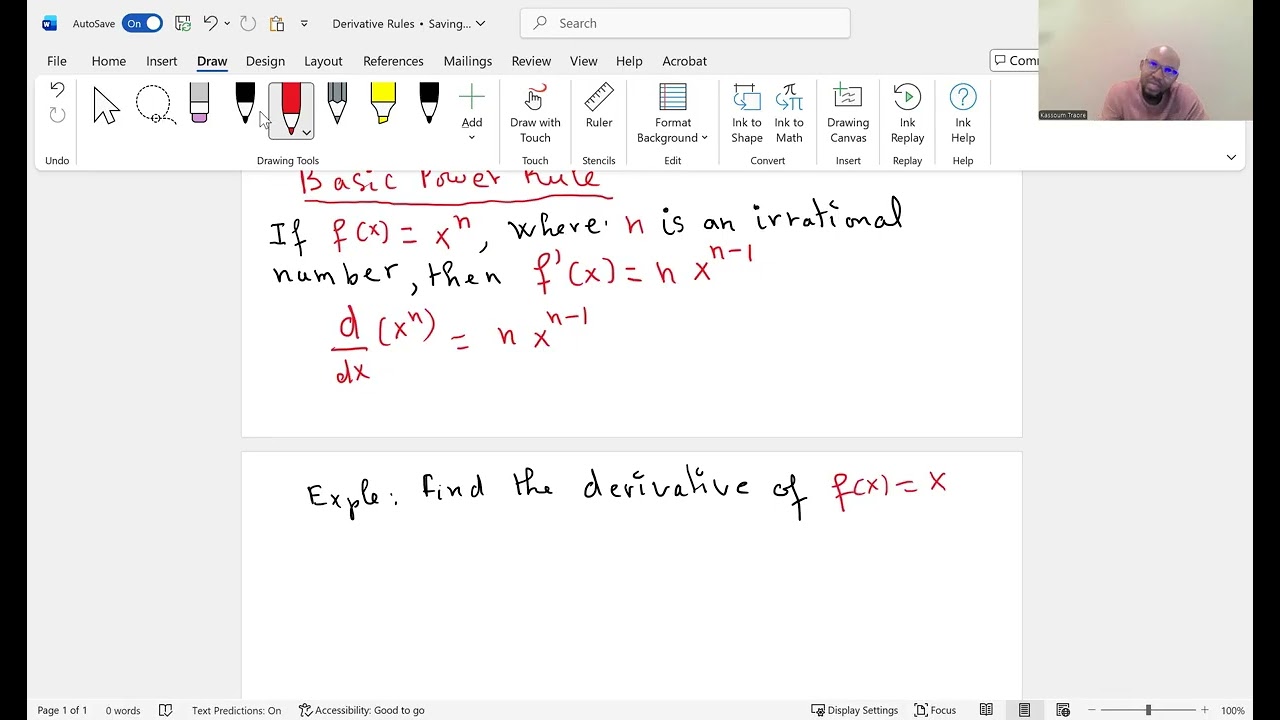 AutoSave On Derivative Rules • Saving... Search
File Home Insert Draw Design Layout References Mailings Review View Help Acrobat Com
Add Draw with Touch Ruler Format Background Ink to Shape Ink to Math Drawing Canvas Ink Replay Ink Help
Undo Drawing Tools Touch Stencils Edit Convert Insert Replay Help
Kassoum Traore
Basic Power Rule
If f(x) = xⁿ, where n is an irrational
number, then f'(x) = n xⁿ⁻¹
d/dx (xⁿ) = n xⁿ⁻¹
Exple: find the derivative of f(x) = x
Page 1 of 1 0 words Text Predictions: On Accessibility: Good to go Display Settings Focus 100%